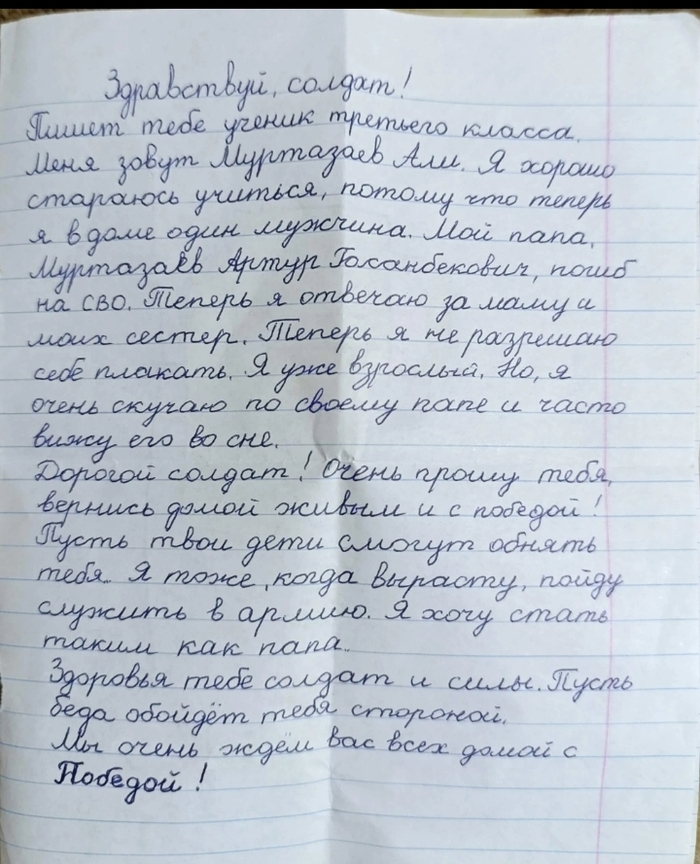 Здравствуй, солдат!
Пишет тебе ученик третьего класса.
Меня зовут Муртазаев Али. Я хорошо
стараюсь учиться, потому что теперь
я в доме один мужчина. Мой папа,
Муртазаев Артур Гасанбекович, погиб
на СВО. Теперь я отвечаю за маму и
моих сестер. Теперь я не разрешаю
себе плакать. Я уже взрослый. Но, я
очень скучаю по своему папе и часто
вижу его во сне.
Дорогой солдат! Очень прошу тебя,
вернись домой живым и с победой!
Пусть твои дети смогут обнять
тебя. Я тоже, когда вырасту, пойду
служить в армию. Я хочу стать
таким как папа.
Здоровья тебе солдат и силы. Пусть
беда обойдёт тебя стороной.
Мы очень ждём вас всех домой с
Победой!